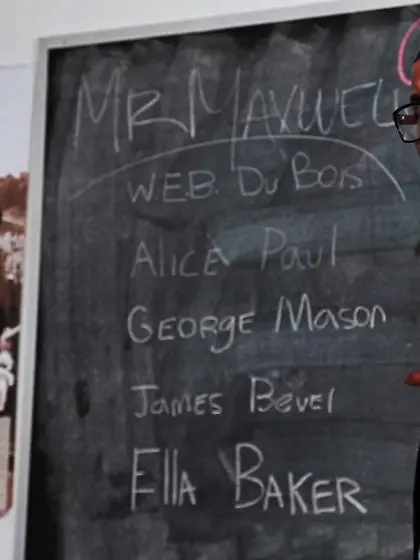 MR MAXWELL
W.E.B. DuBois
Alice Paul
GEORGE Mason
James Bevel
Ella BAKER